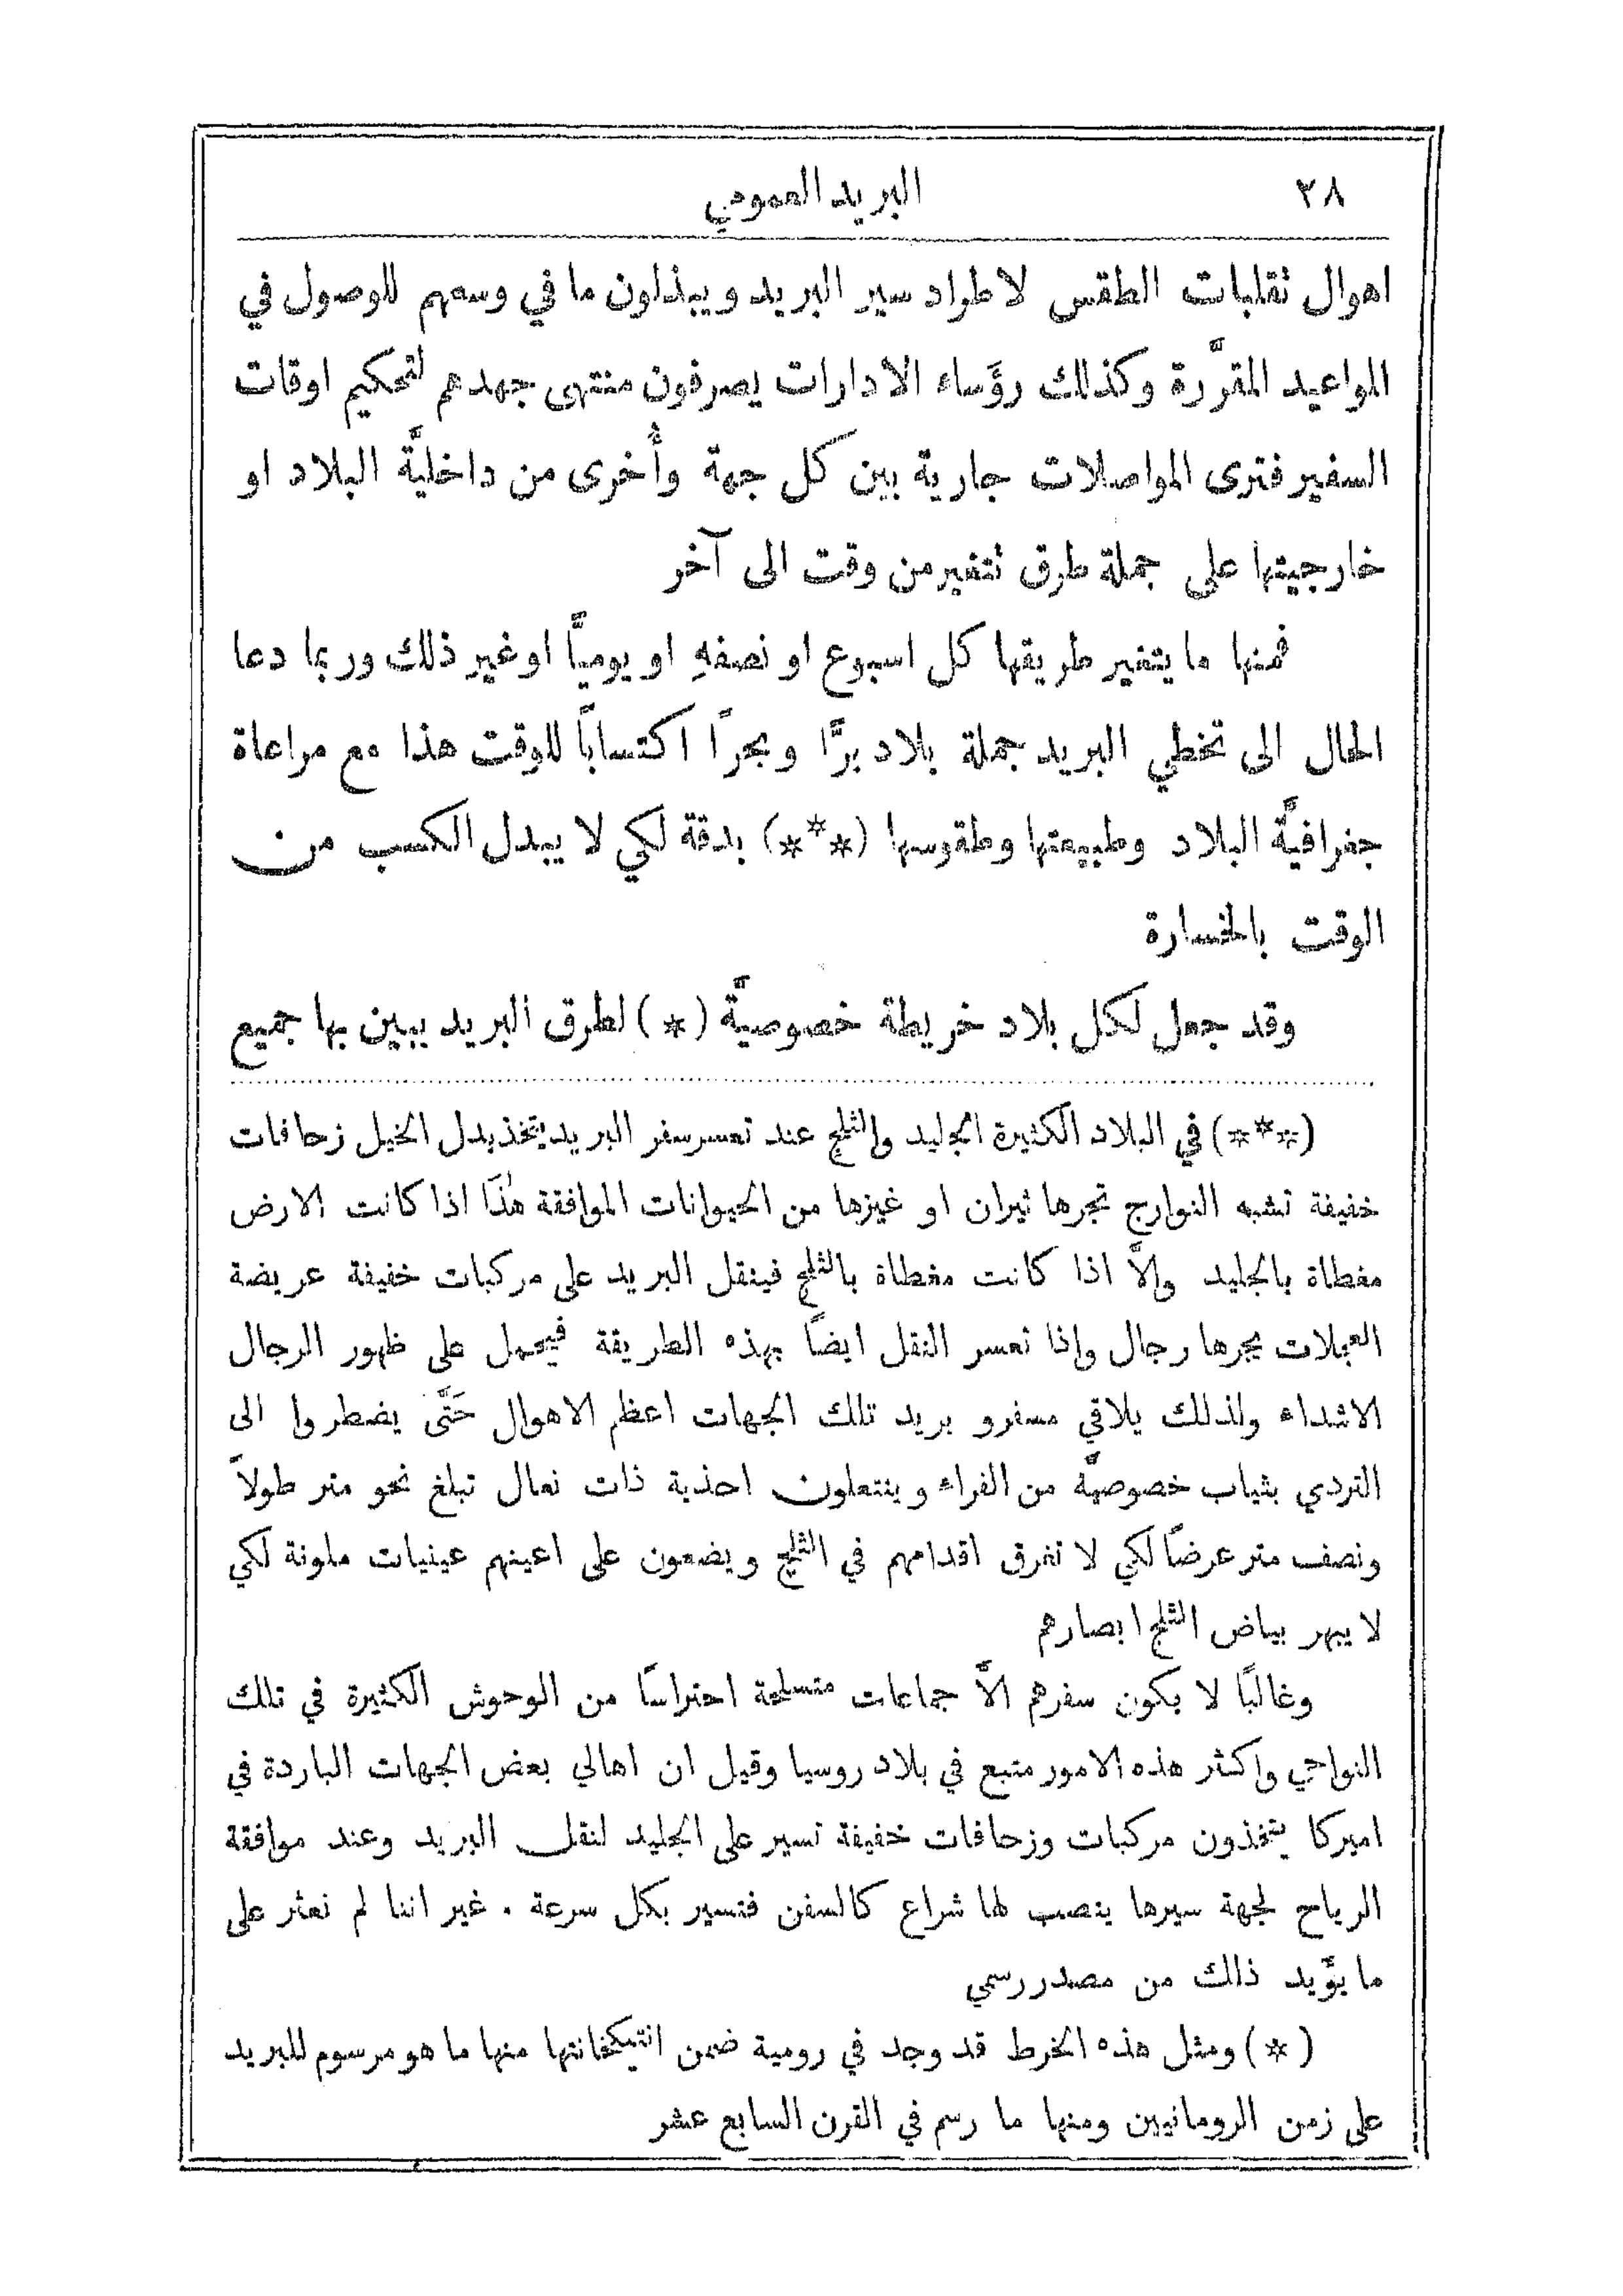 ٢٨
البريد العمومي
اهوال تقلبات الطقس لاطراد سير البريد ويبذلون ما في وسعهم للوصول في
المواعيد المقرَّرة وكذلك رؤَساء الادارات يصرفون منتهى جهدهم لتحكيم اوقات
السفير فترى المواصلات جارية بين كل جهة وأُخرى من داخليَّة البلاد او
خارجيتها على جملة طرق تتغير من وقت الى آخر
فمنها ما يتغير طريقها كل اسبوع او نصفهِ او يوميًّا او غير ذلك وربما دعا
الحال الى تخطي البريد جملة بلاد برًّا وبحرًا اكتسابًا للوقت هذا مع مراعاة
جغرافيَّة البلاد وطبيعتها وطقوسها (***) بدقة لكي لا يبدل الكسب من
الوقت بالخسارة
وقد جعل لكل بلاد خريطة خصوصيَّة (*) لطرق البريد يبين بها جميع
(***) في البلاد الكثيرة الجليد والثلج عند تعسر سفر البريد يتخذ بدل الخيل زحافات
خفيفة تشبه النوارج تجرها ثيران او غيرها من الحيوانات الموافقة هٰذَا اذا كانت الارض
مغطاة بالجليد والَّا اذا كانت مغطاة بالثلج فينقل البريد على مركبات خفيفة عريضة
العجلات يجرها رجال واذا تعسر النقل ايضًا بهذه الطريقة فيحمل على ظهور الرجال
الاشداء ولذلك يلاقي مسفرو بريد تلك الجهات اعظم الاهوال حَتَّى يضطروا الى
التردي بثياب خصوصيَّة من الفراء وينتعلون احذية ذات نعال تبلغ نحو متر طولاً
ونصف متر عرضًا لكي لا تغرق اقدامهم في الثلج ويضعون على اعينهم عينيات ملونة لكي
لا يبهر بياض الثلج ابصارهم
وغالبًا لا يكون سفرهم الَّا جماعات متسلحة احتراسًا من الوحوش الكثيرة في تلك
النواحي واكثر هذه الامور متبع في بلاد روسيا وقيل ان اهالي بعض الجهات الباردة في
اميركا يتخذون مركبات وزحافات خفيفة تسير على الجليد لنقل البريد وعند موافقة
الرياح لجهة سيرها ينصب لها شراع كالسفن فتسير بكل سرعة . غير اننا لم نعثر على
ما يؤَيد ذلك من مصدر رسمي
(*) ومثل هذه الخرط قد وجد في رومية ضمن انتيكخانتها منها ما هو مرسوم للبريد
على زمن الرومانيين ومنها ما رسم في القرن السابع عشر